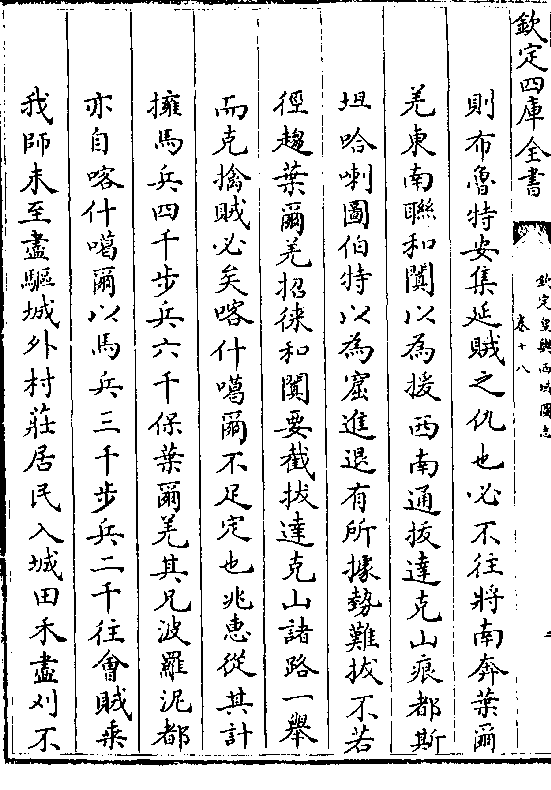 欽定四庫全書
欽定皇輿西域圖志
卷十八
則布魯特安集延賊之仇也必不往將南奔葉爾
羌東南聯和闐以為援西南通拔達克山痕都斯
坦哈喇圖伯特以為窟進退有所據勢難拔不若
徑趨葉爾羌招徠和闐要截拔達克山諸路一舉
而克擒賊必矣喀什噶爾不足定也兆惠從其計
擁馬兵四千步兵六千保葉爾羌其兄波羅泥都
亦自喀什噶爾以馬兵三千步兵二千往會賊乘
我師未至盡驅城外村莊居民入城田禾盡刈不